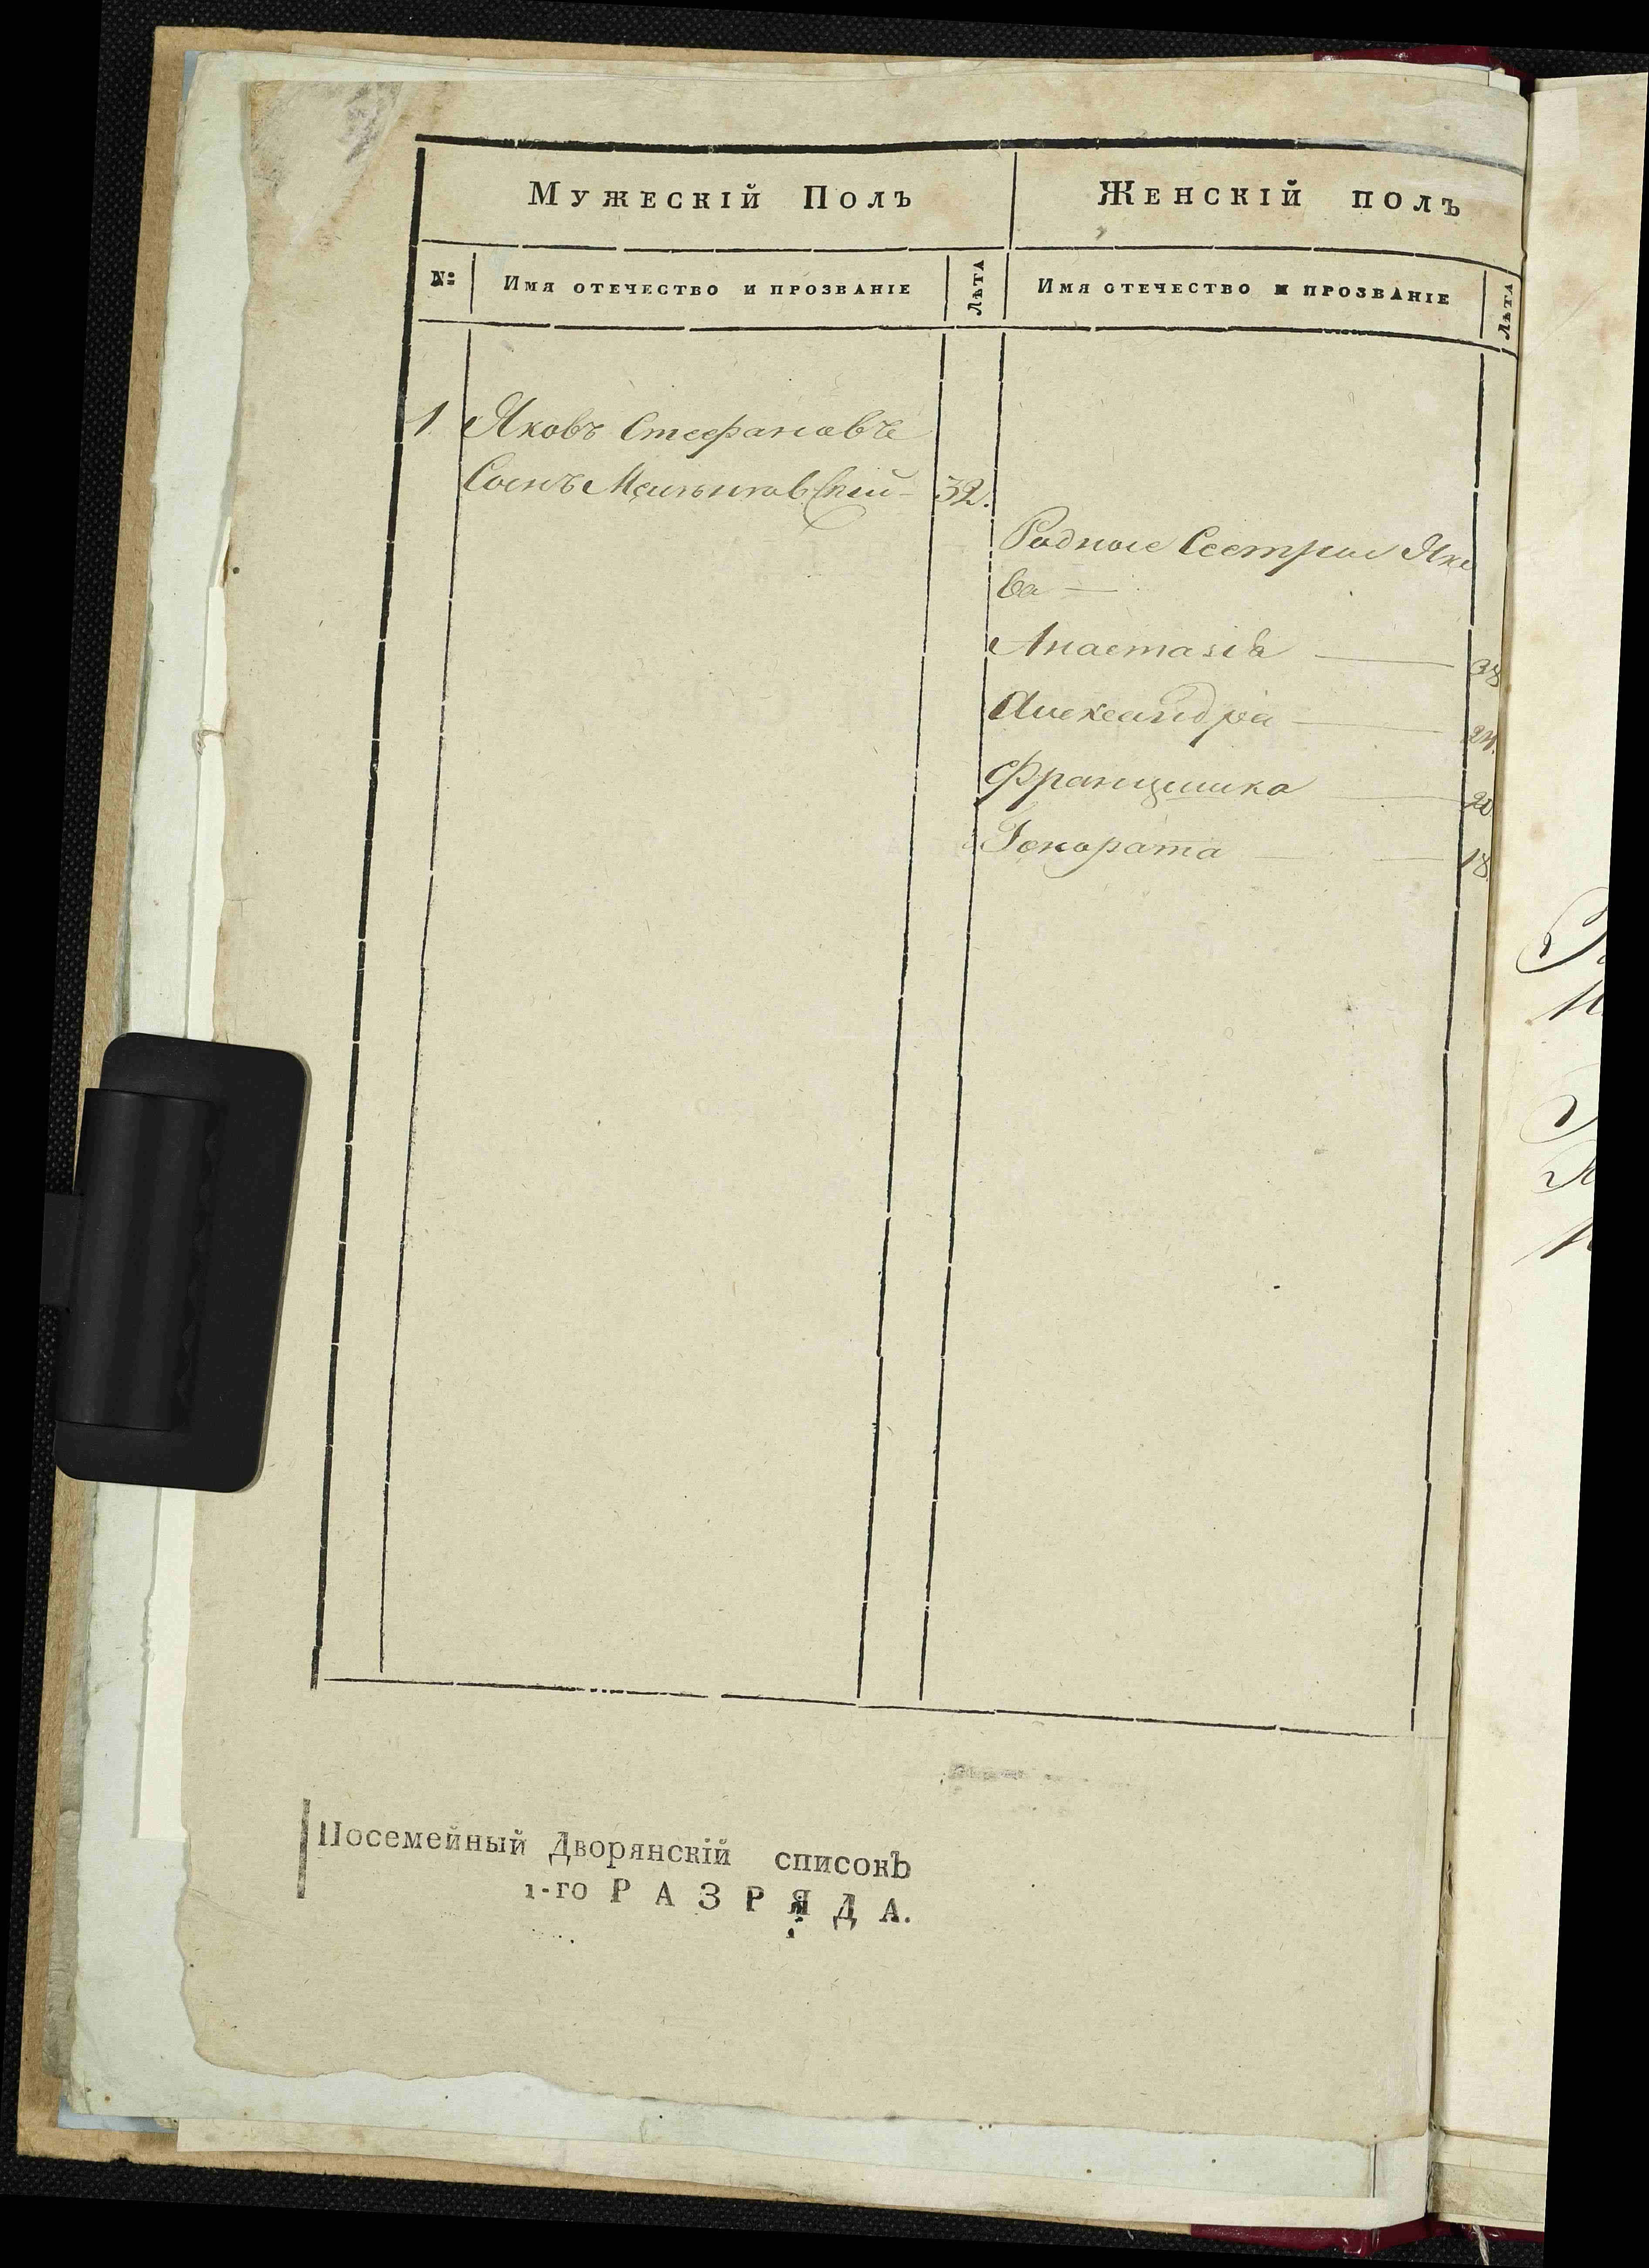 Мужескій Полъ
Женскій полъ
№
Имя отечество и прозваніе
Лѣта
Имя отечество и прозваніе
Лѣта
1. Яковъ Стефановъ
Сынъ 32.
Родные Сестры Яко
ва —
Анастасія — 38
Александра — 24.
Францишка — 20
Гонората — 18.
Посемейный Дворянскій списокъ
1-го РАЗРЯДА.